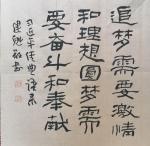 追梦需要激情
和理想圆梦需
要奋斗和奉献
习近平经典语录